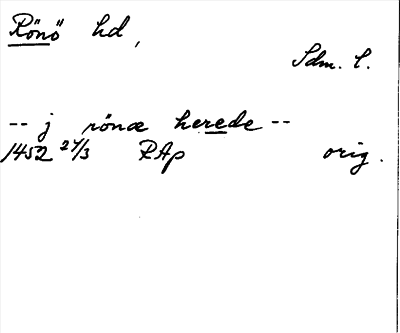 Rönö hd,
Sdm. l.
-- j rönæ herede --
1452 24/3 RAp orig.